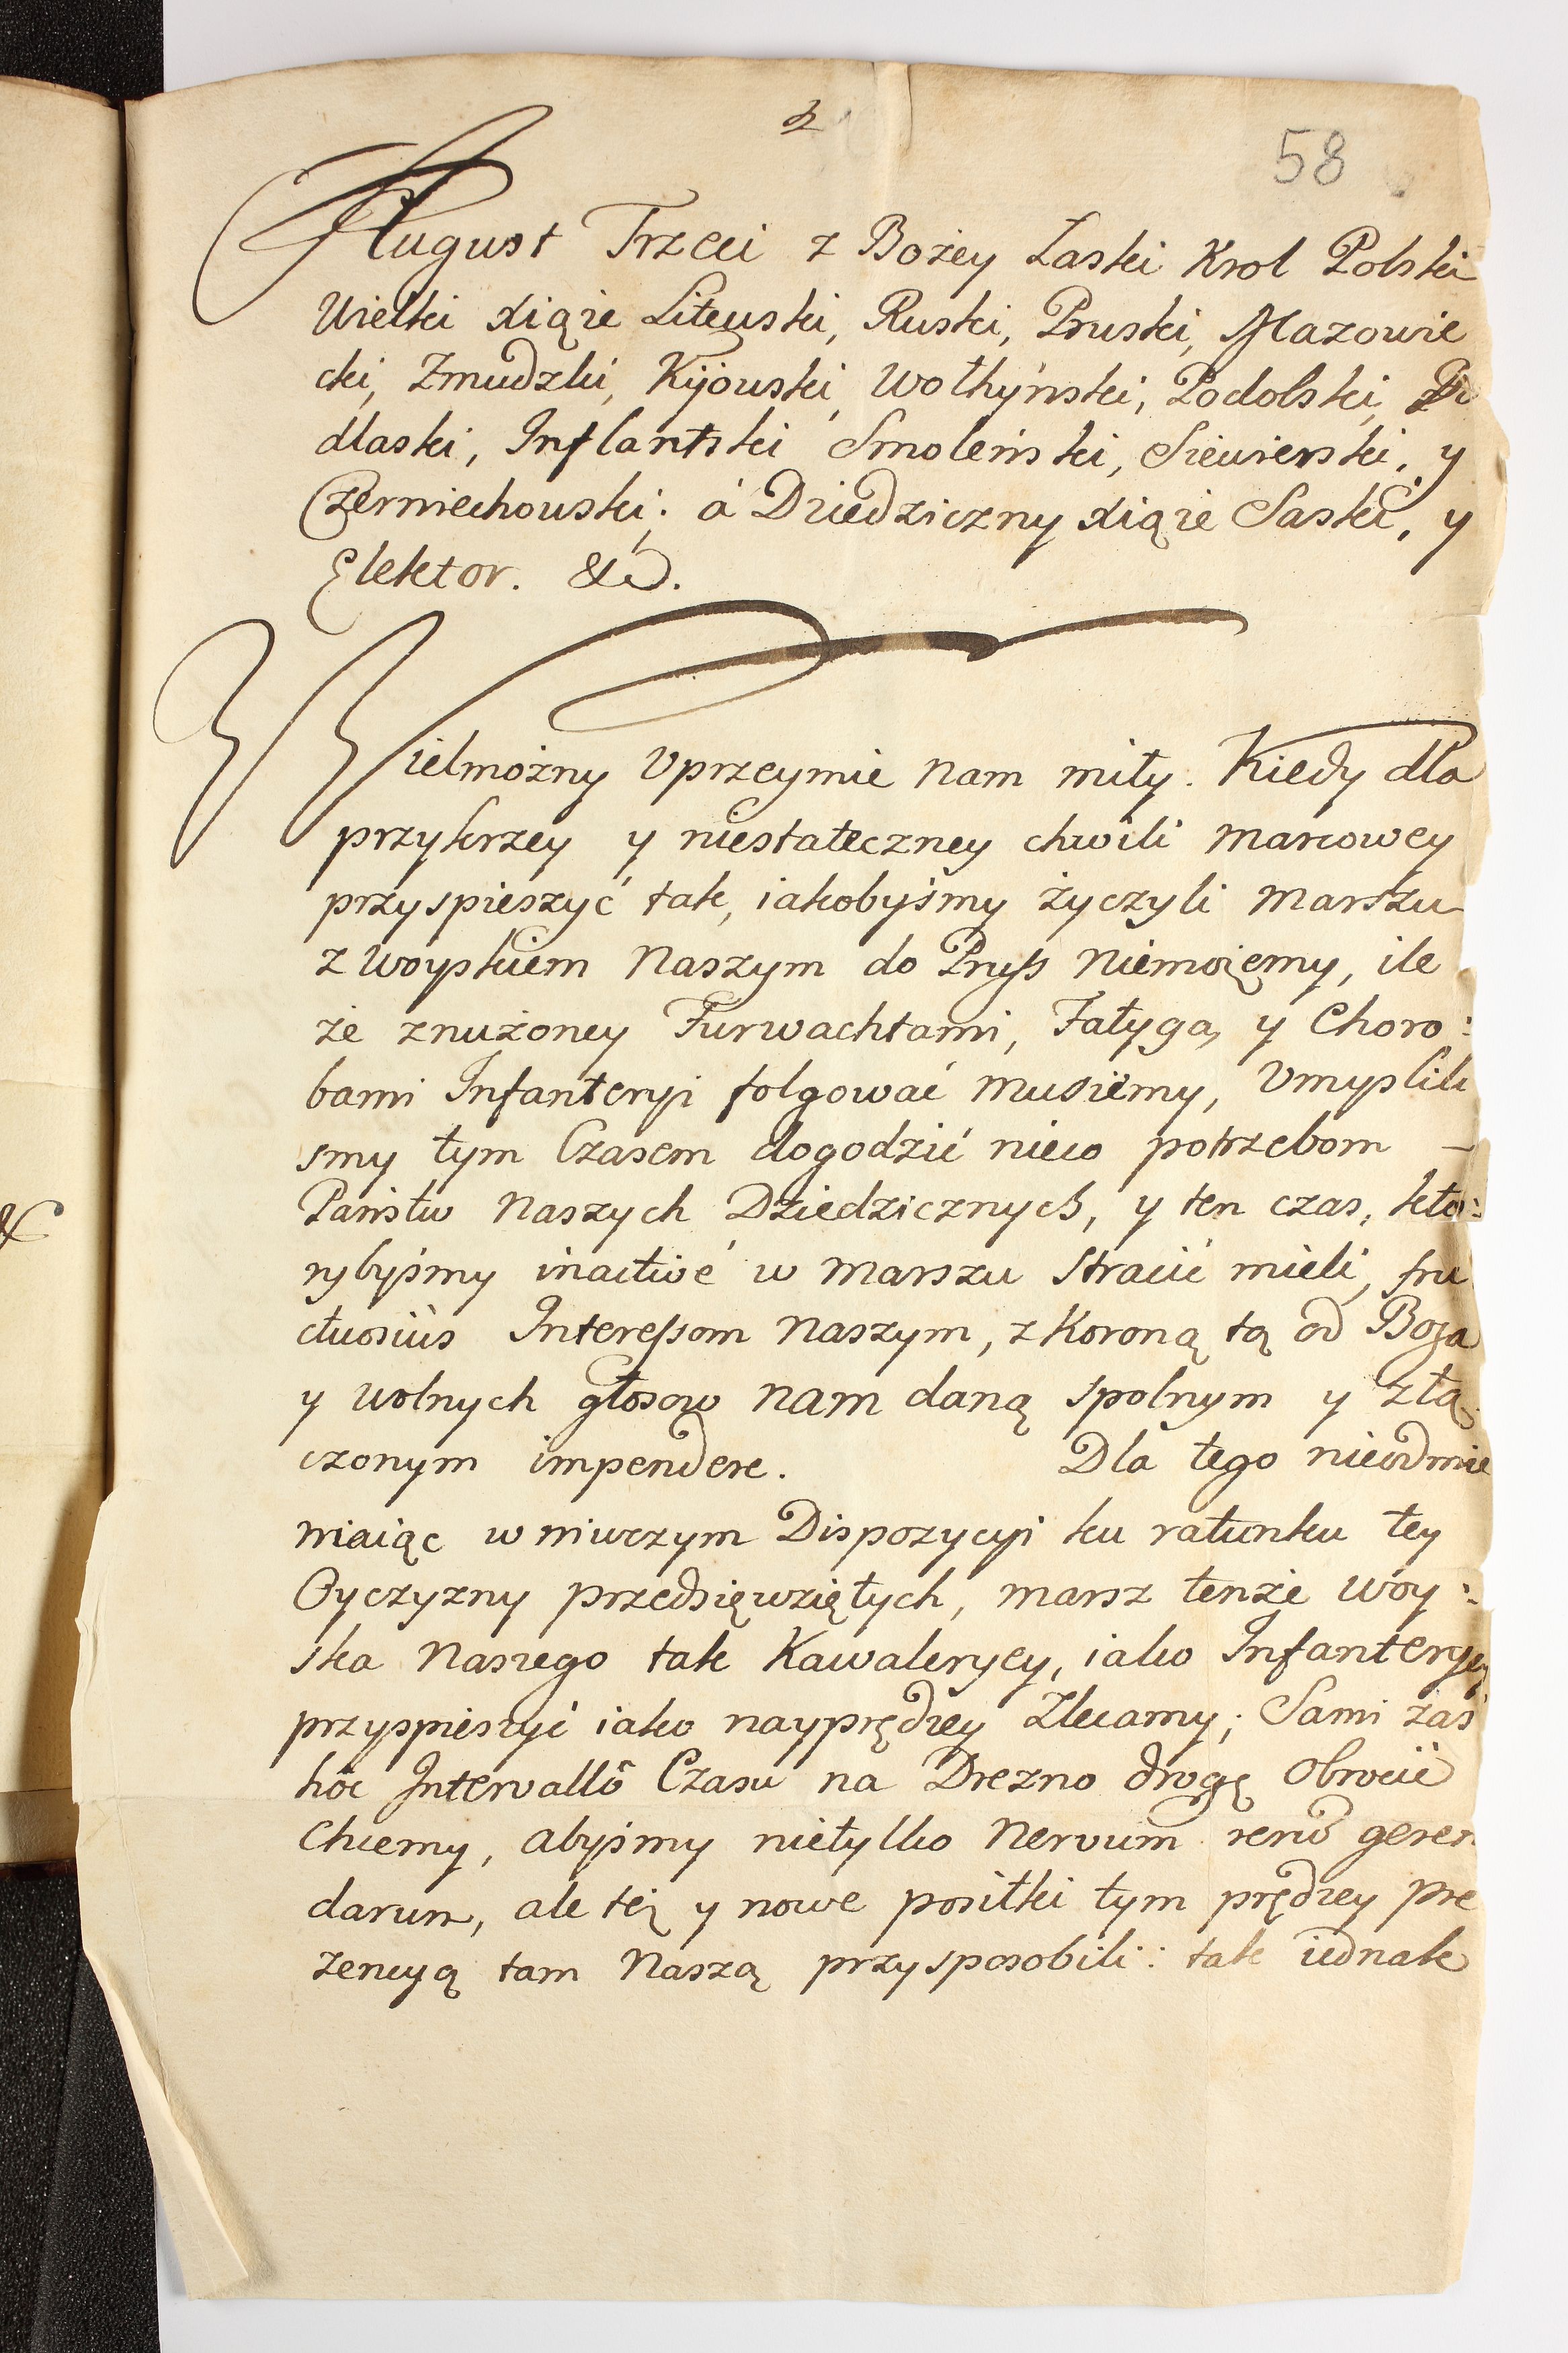 58
August Trzeci z Bożey Łaski Krol Polski
Wielki Xiąże Litewski, Ruski, Pruski, Mazowie
cki, Zmudzki, Kijowski, Wołhyński, Podolski, Po
dlaski, Inflantski Smoleński, Siewierski, y
Czerniechowski; á Dziedziczny Xiąże Saski, y
Elektor. &c.
Wielmożny Uprzeymie nam miły. Kiedy dla
przykrzey y niestateczney chwili marcowey
przyspieszyć tak, iakobyśmy życzyli marszu
z woyskiem Naszym do Pruss niemożęmy, ile
że znużoney Furwachtami, Fatygą, y Choro:
bami Infanteryi folgować musiemy, Umyslili
smy tym Czasem dogodzić nieco potrzebom –
Państw Naszych Dziedzicznych, y ten czas, kto:
rybyśmy inactivé w marszu stracić mieli, fru
ctuosiùs Interessom Naszym, z Koroną tą od Boga
y wolnych głosow nam daną spolnym y złą
czonym impendere. Dla tego nieodmie
niaiąc w niwczym Dispozycyi ku ratunku tey
Oyczyzny przedsięwziętych, marsz tenże woy:
ska Naszego tak Kawaleryey, iako Infanteryey
przyspieszyć iako nayprędzey Zlecamy; Sami zaś
hôc Intervallô Czasu na Drezno drogę obrocić
chcemy, abyśmy nietylko Nervum rerũ geren
darum, ale też y nowe posiłki tym prędzey pre
zencyą tam Naszą przysposobili: tak iednak